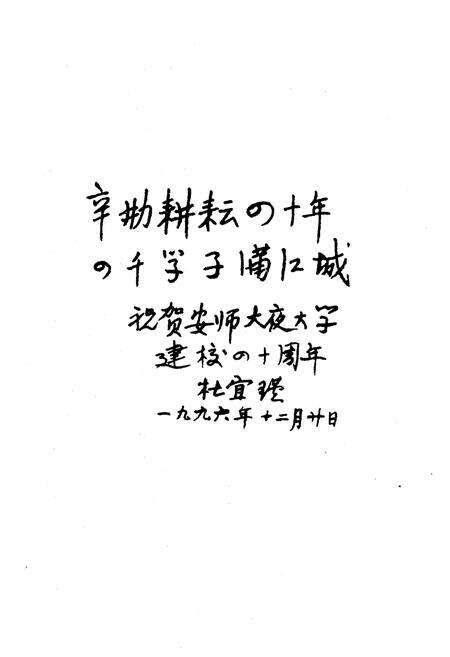 辛勤耕耘四十年
四千学子满江城
祝贺安师大夜大学
建校四十周年
杜宜瑾
一九九六年十二月廿日